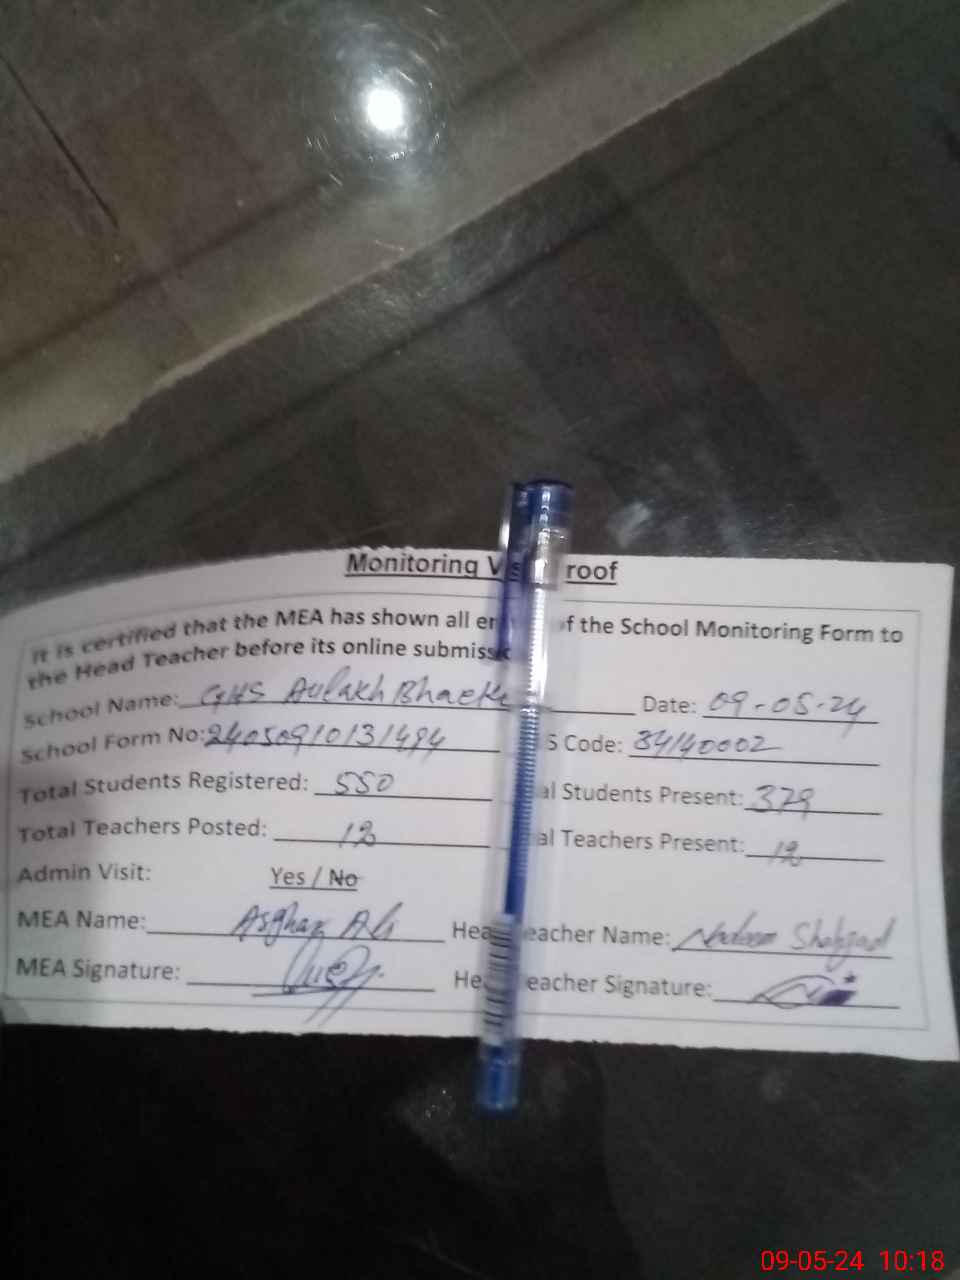 Monitoring Vis roof
It is certified that the MEA has shown all en f the School Monitoring Form to
the Head Teacher before its online submissio
School Name: GHS Aulakh Bhaeke Date: 09-05-24
School Form No: 24050910131494 S Code: 34140002
Total Students Registered: 550 al Students Present: 379
Total Teachers Posted: 12 al Teachers Present: 12
Admin Visit: Yes / No
MEA Name: Asghar Ali Hea eacher Name: Nadeem Shahzad
MEA Signature: He eacher Signature:
09-05-24 10:18